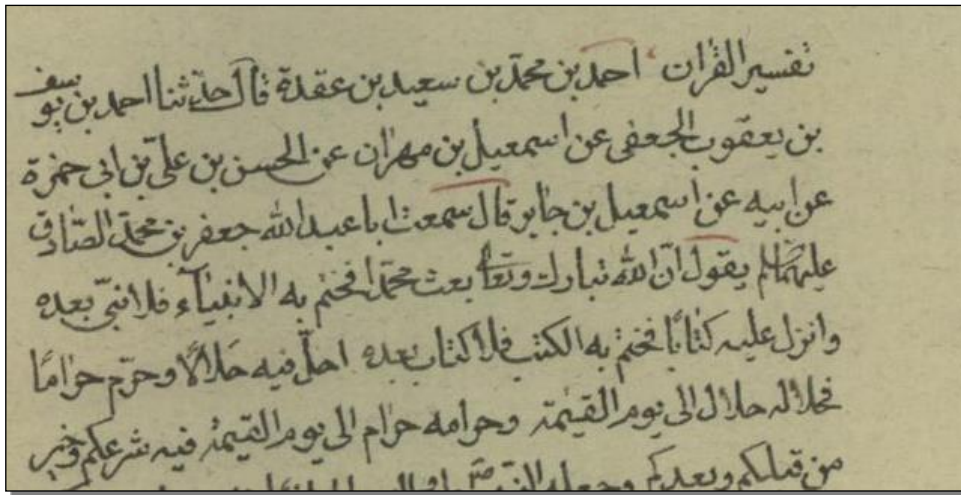 تفسير القرٰان احمد بن محمّد بن سعيد بن عقدة قال حدّثنا احمد بن يوسف
بن يعقوب الجعفى عن اسمعيل بن مهرٰان عن الحسن بن علىّ بن ابى حمزة
عن ابيه عن اسمعيل بن جابر قال سمعت ابا عبد الله جعفر بن محمّد الصّادق
يقول انّ الله تبارك وتعا بعث محمّدا فختم به الانبيآء فلا نبىّ بعده
وانزل عليه كتابًا فختم به الكتب فلا كتاب بعده احلّ فيه حلالًا وحرّم حرامًا
فحلاله حلال الى يوم القيٰمة وحرامه حرام الى يوم القيٰمة فيه شرعكم وخبر
من قبلكم وبعدكم وجعله النبىّ